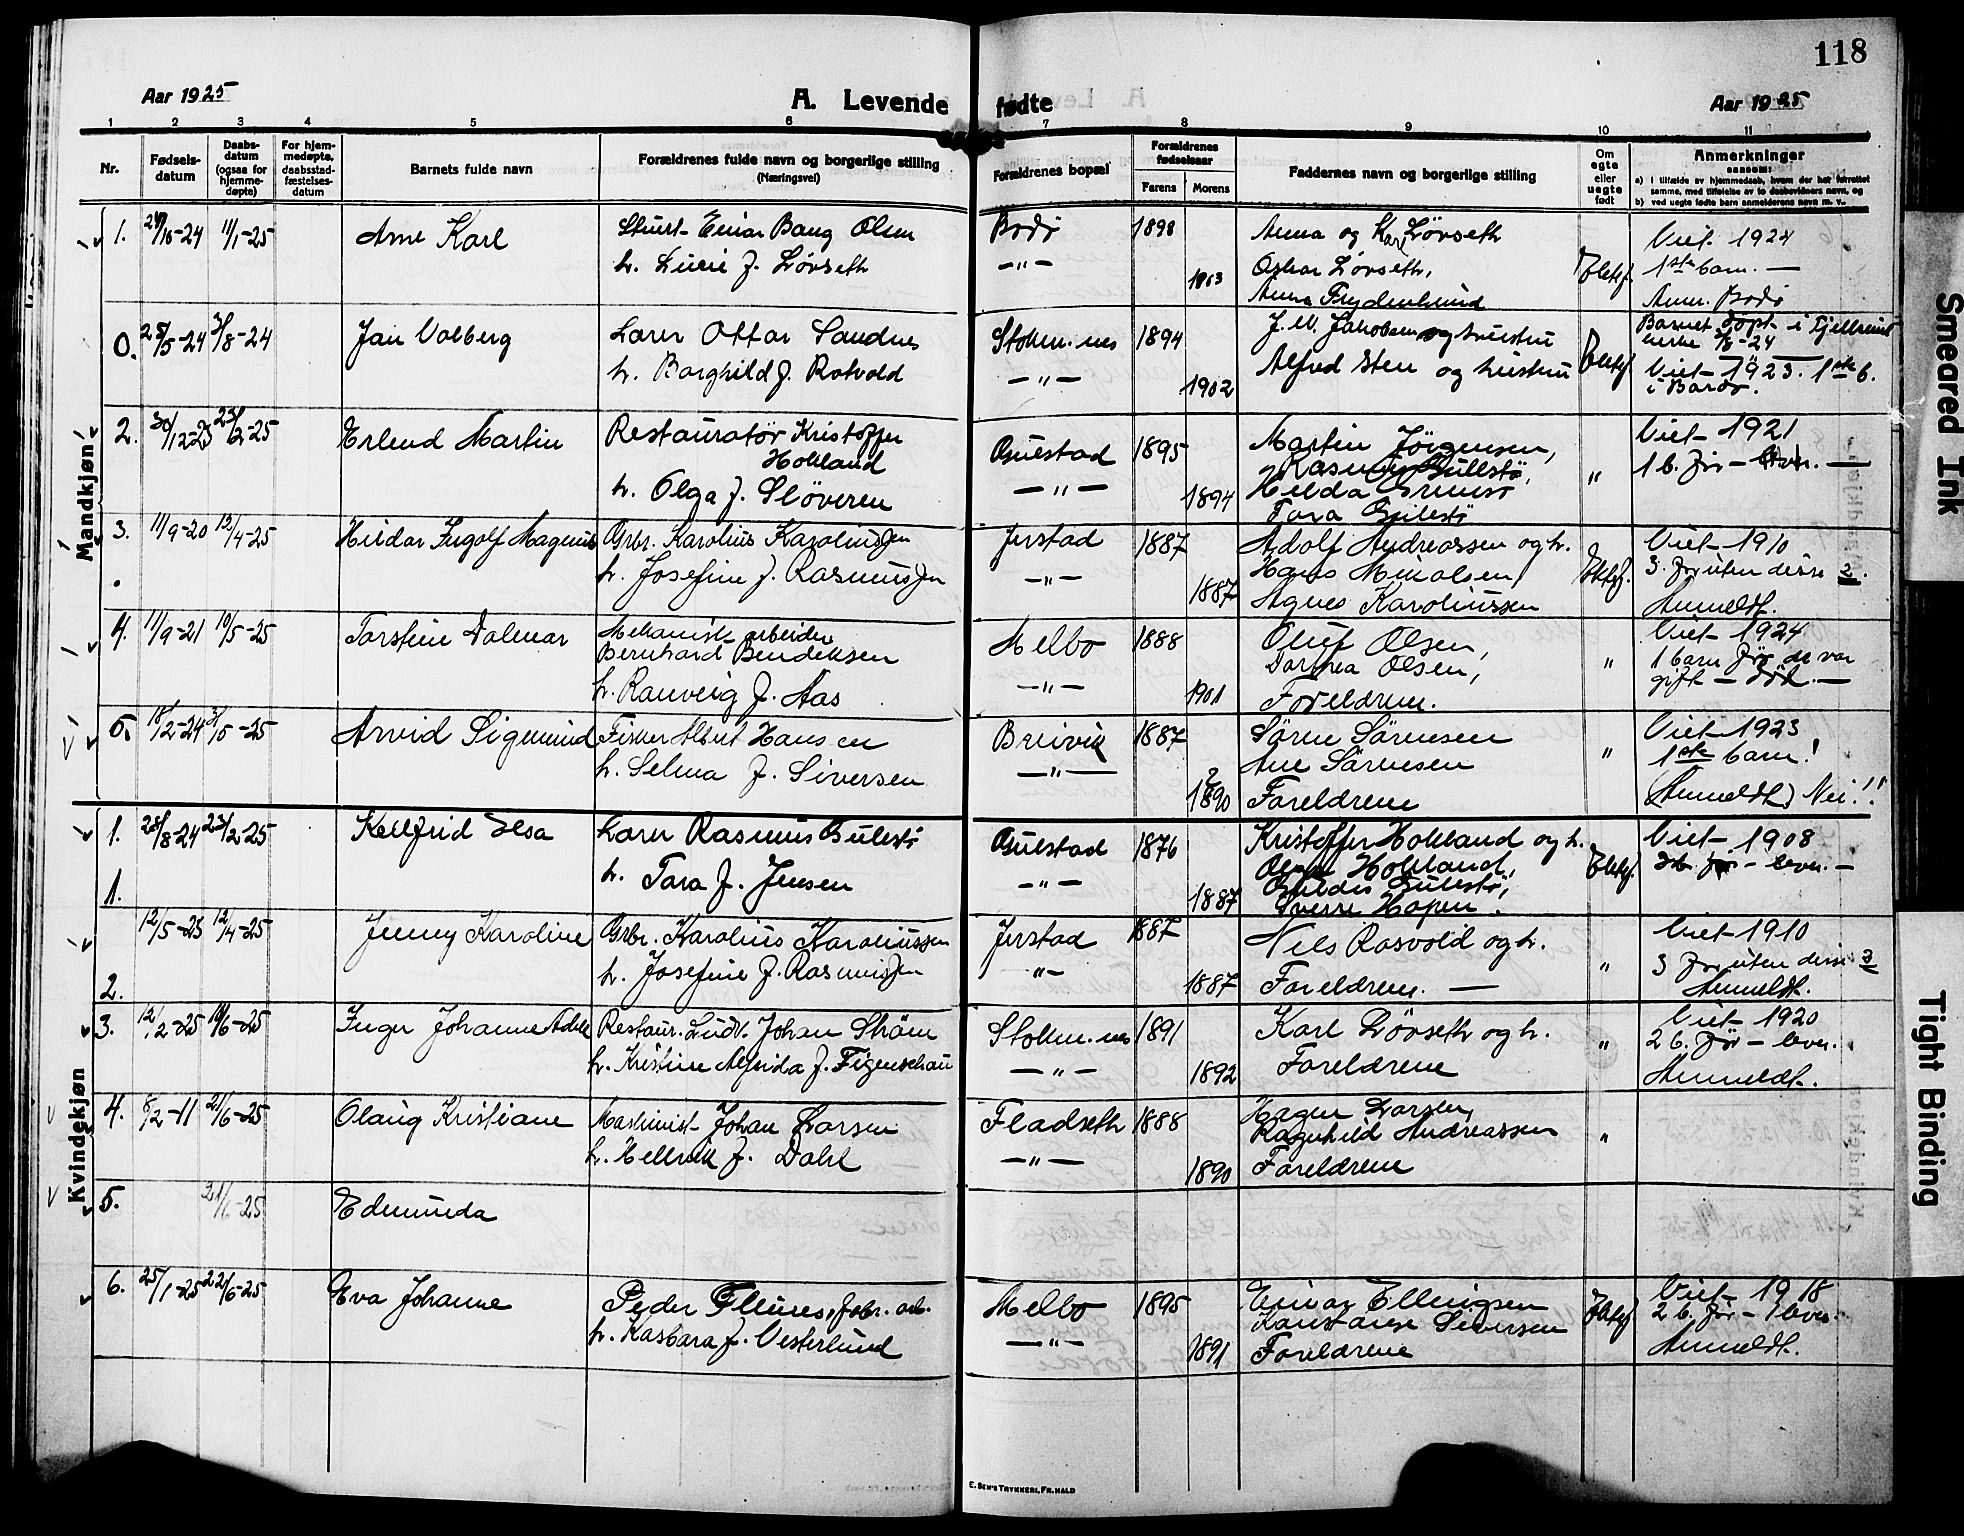 118
Aar 1925
A. Levende fødte
Aar 1925
1 2 3 4 5 6 7 8 9 10 11
Nr.
Fødsels-
datum
Daabs-
datum
(ogsaa for
hjemme-
døpte)
For hjem-
medøpte,
daabsstad-
fæstelses-
datum
Barnets fulde navn
Forældrenes fulde navn og borgerlige stilling
(Næringsvei)
Forældrenes bopæl
Forældrenes
fødselsaar
Farens Morens
Faddernes navn og borgerlige stilling
Om
egte
eller
uegte
født
Anmerkninger
saasom:
a) i tilfælde av hjemmedaab, hvem der har forrettet
samme, med tilføielse av to daabsvidners navn, og
b) ved uegte fødte barn anmelderens navn m. v.
Mandkjøn
1. 11/1-25 Arne Karl
Einar Bang Olsen
h. Lucie f. Lövseth
Bodö
—"—
1898
1903
Anna og Karl Lövseth
Oskar Lövseth,
Anna Frydenlund
Ektef.
Viet 1924
1ste barn. —
Anm. Bodö
0. 25/5-24 3/8-24 Jan Valberg
Lærer Ottar Sandnes
h. Borghild f. Rotvold
Stokm.nes
—"—
1894
1902
J. M. Jakobsen og hustru
Alfred Steen og hustru
Ektef.
Barnet döpt i Fjellheim
kirke 3/8-24
Viet 1923. 1ste b.
i Bardo.
2. 30/12-23 23/2-25 Erlend Martin
Restauratör Kristoffer
Hokland
h. Olga f. Slöveren
Gulstad
—"—
1895
1894
Martin Jörgensen,
Rasmus Gullestö,
Hilda
Tora Gullestö
"
Viet 1921
1 b. för —
3. 11/9-20 12/4-25 Hildar Ingolf Magnus
Grbr. Karolius Karoliussen
h. Josefine f. Rasmussen
Jerstad
—"—
1887
1887
Adolf Andreassen og h.
Hans Mikalsen,
Agnes Karoliussen
Ektef.
Viet 1910
3 för uten disse 2.
Anmeldt.
4. 11/9-21 10/5-25 Torstein Dalmar
Mekanisk arbeider
Bernhard Bendiksen
h. Ranveig f. Aas
Melbo
—"—
1888
1901
Oluf Olsen,
Dorthea Olsen,
Foreldrene.
"
Viet 1924
1 barn för de var
gift — död. —
5. 18/2-24 31/5-25 Arvid Sigmund
Fisker Albert Hansen
h. Selma f. Siversen
Breivik
—"—
1887
1890
Sören Sörensen
Ane Sörensen
Foreldrene
"
Viet 1923
1ste barn!
(Anmeldt) Nei!!
Kvindekjøn
1. 28/8-24 23/2-25 Kellfrid Elsa
1.
Lærer Rasmus Gullestö
h. Tora f. Jensen
Gulstad
—"—
1876
1887
Kristoffer Hokland og h.
Olga Hokland,
Gullestö,
Sverre Hopen.
Ektef.
Viet 1908
lever. —
12/5-23 12/4-25 Jenny Karoline
2.
Grbr. Karolius Karoliussen
h. Josefine f. Rasmussen
Jerstad
—"—
1887
1887
Nils Rasvold og h.
Foreldrene. —
"
Viet 1910
3 för uten disse 2
Anmeldt.
3. 12/2-25 10/6-25 Inger Johanne Adele
Restaur. Ludv. Johan Ström
h. Kristine Alfrida f. Figenschau
Stokm.nes
—"—
1891
1892
Karl Lövseth og h.
Foreldrene
"
Viet 1920
2 b. för — lever.
Anmeldt.
4. 8/2-11 21/6-25 Olaug Kristiane
Maskinist Johan Larsen
h. Hellvik f. Dahl
Fladseth
—"—
1888
1890
Hagen Larsen,
Ragnhild Andreassen
Foreldrene
"
5. 21/6-25 Edmunda
6. 25/1-25 22/6-25 Eva Johanne
Peder Flenes, arb.
h. Kasbara f. Vesterlund
Melbo
—"—
1895
1891
Einar Ellingsen
Konstanse Siversen
Foreldrene
Ektef.
Viet 1918
2 b. för — 1 lever.
Anmeldt.
E. SEM'S TRYKKERI, FR.HALD
Smeared Ink
Tight Binding